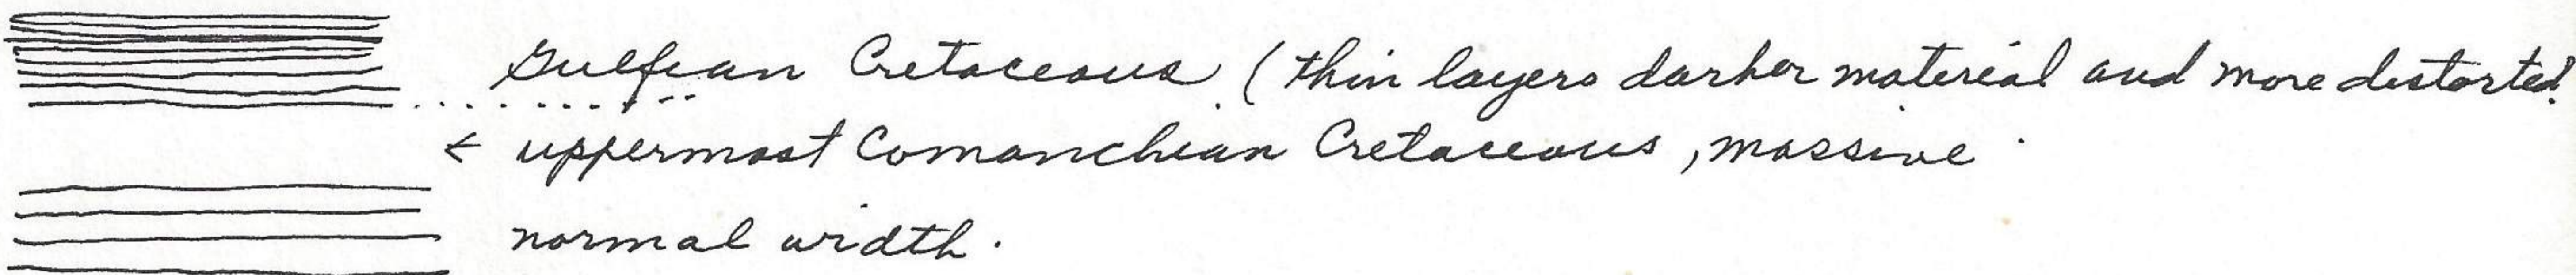 Gulfian Cretaceous (thin layers darker material and more distorted.
← uppermost Comanchian Cretaceous, massive
normal width.